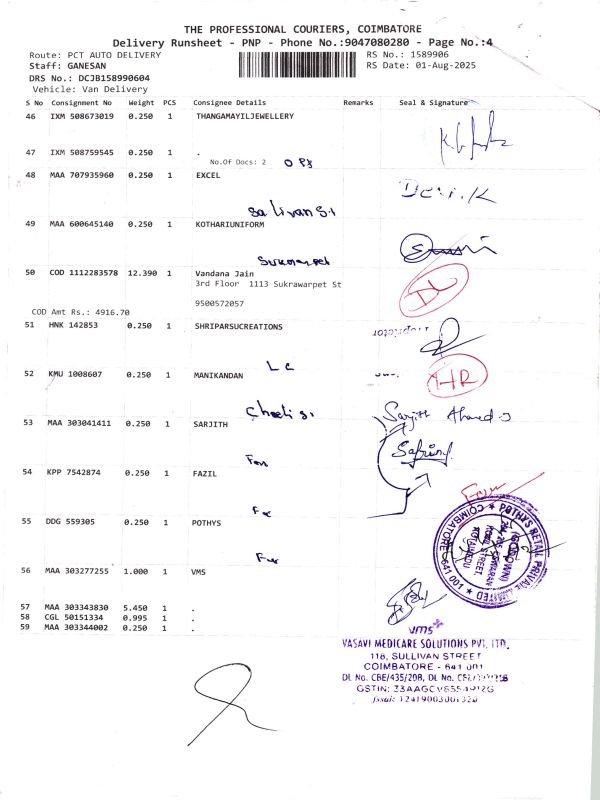 THE PROFESSIONAL COURIERS, COIMBATORE
Delivery Runsheet - PNP - Phone No.:9047080280 - Page No.:4
Route: PCT AUTO DELIVERY RS No.: 1589906
Staff: GANESAN RS Date: 01-Aug-2025
DRS No.: DCJB158990604
Vehicle: Van Delivery
S No Consignment No Weight PCS Consignee Details Remarks Seal & Signature
46 IXM 508673019 0.250 1 THANGAMAYILJEWELLERY
47 IXM 508759545 0.250 1 .
No.Of Docs: 2
48 MAA 707935960 0.250 1 EXCEL
Devi.K
Sullivan St
49 MAA 600645140 0.250 1 KOTHARIUNIFORM
50 COD 1112283578 12.390 1 Vandana Jain
3rd Floor 1113 Sukrawarpet St
9500572057
COD Amt Rs.: 4916.70
51 HNK 142853 0.250 1 SHRIPARSUCREATIONS
52 KMU 1008607 0.250 1 MANIKANDAN
HR
53 MAA 303041411 0.250 1 SARJITH
Sarjith Ahamed J
54 KPP 7542874 0.250 1 FAZIL
55 DDG 559305 0.250 1 POTHYS
POTHYS RETAIL PRIVATE LIMITED
COIMBATORE - 641 001
(GODOWN)
56 MAA 303277255 1.000 1 VMS
57 MAA 303343830 5.450 1 .
58 CGL 50151334 0.995 1 .
59 MAA 303344002 0.250 1 .
vms
VASAVI MEDICARE SOLUTIONS PVT, LTD,
118, SULLIVAN STREET
COIMBATORE - 641 001
DL No. CBE/435/20B, DL No.
GSTIN: